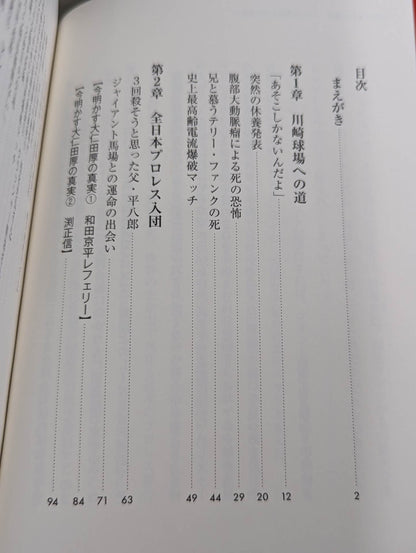 目次
まえがき 2
第1章 川崎球場への道
「あそこしかないんだよ」 12
突然の休養発表 20
腹部大動脈瘤による死の恐怖 29
兄と慕うテリー・ファンクの死 44
史上最高齢電流爆破マッチ 49
第2章 全日本プロレス入団
3回殺そうと思った父・平八郎 63
ジャイアント馬場との運命の出会い 71
【今明かす大仁田厚の真実① 和田京平レフェリー】 84
【今明かす大仁田厚の真実② 渕正信】 94